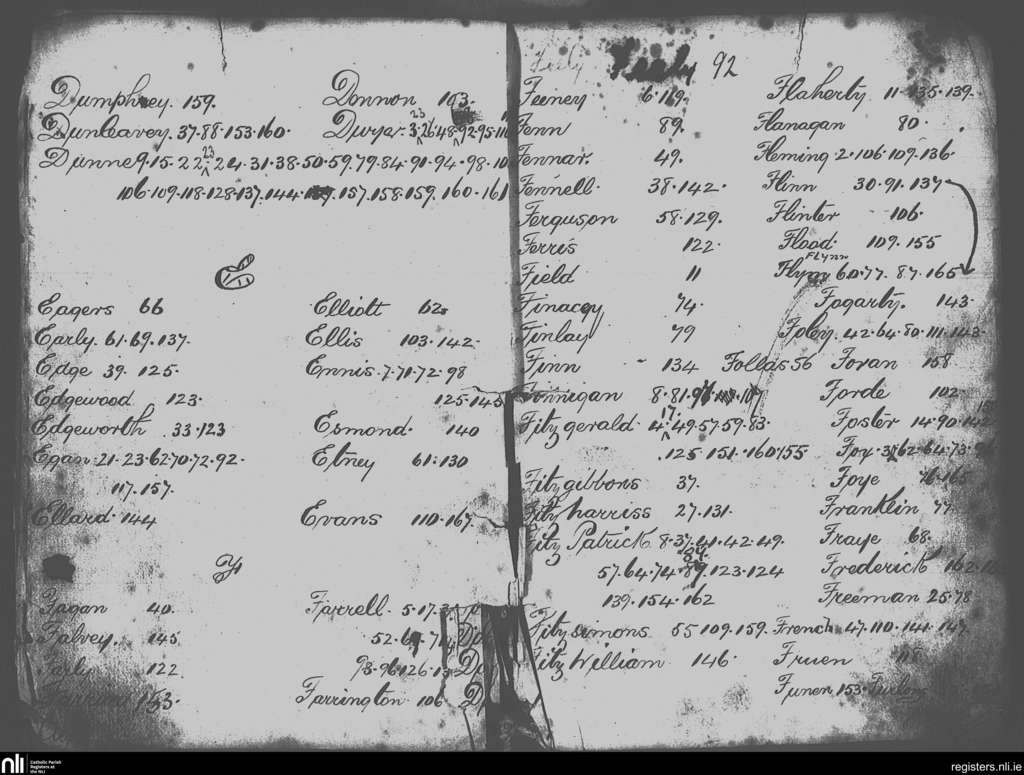 Dumphrey. 159.
Dunleavey. 37.88.153.160.
Dunne 9.15.22.23.24.31.38.50.59.79.84.91.94.98.10
106.109.118.128.137.144. 157.158.159.160.161
Donnon 103.
Dwyer. 3.23.26.48.92.95.110
E
Eagers 66
Early. 61.69.137.
Edge 39. 125.
Edgewood 123.
Edgeworth 33.123
Egan. 21.23.62.70.72.92.
117.157.
Ellard. 144
Elliott 62.
Ellis 103.142.
Ennis. 7.71.72.98
125.145
Esmond. 140
Etney 61.130
Evans 110.167.
F
Fagan 40.
Falvey. 145
122
153.
Farrell. 5.17.
52.
93.96.126.
Farrington 106
Feely 92
Feeney 6.119.
Fenn 89.
Fennar. 49.
Fennell. 38.142.
Ferguson 58.129.
Ferris 122.
Field 11
Finacey 74.
Finlay 79
Finn 134
Finnigan 8.81.
Fitzgerald 4.17.49.57.59.83.
125.151.160.155
Fitzgibbons 37.
Fitz harriss 27.131.
Fitz Patrick 8.37.41.42.49.
57.64.74.89.123.124
139.154.162
Fitzsimons 55.109.159.
Fitz William 146.
Flaherty 11.135.139.
Flanagan 80.
Fleming 2.106.109.136.
Flinn 30.91.137
Flinter 106.
Flood. 109.155
Flynn
Flynn 60.77. 87.165
Fogarty. 143.
Foley. 42.64.80.111.143.
Follas 56
Foran 158
Forde 102
Foster 14.90.142
Foy. 37.62.64.73.
Foye 76.165
Franklin 77
Fraye 68.
Frederick 162
Freeman 25.78
French 47.110.141.147
Fruen 118
Funen 153. Furlong
nli
Catholic Parish
Registers at
the NLI
registers.nli.ie